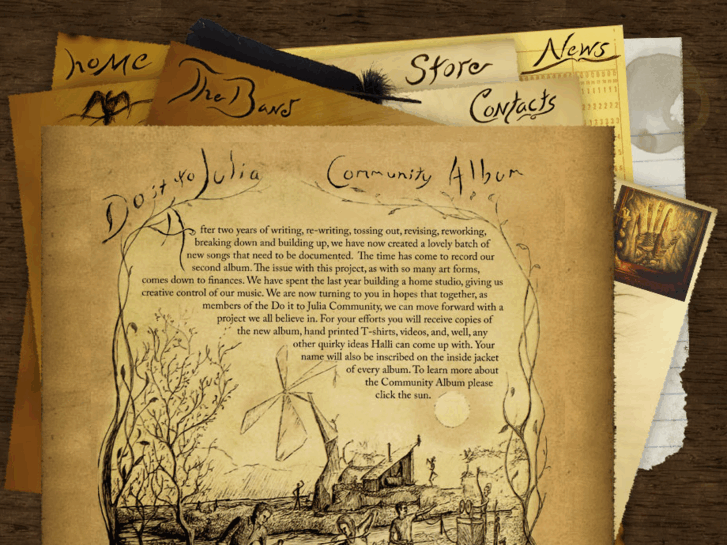 Home
The Band
Store
News
Contacts
Do it to Julia
Community Album
After two years of writing, re-writing, tossing out, revising, reworking,
breaking down and building up, we have now created a lovely batch of
new songs that need to be documented. The time has come to record our
second album. The issue with this project, as with so many art forms,
comes down to finances. We have spent the last year building a home studio, giving us
creative control of our music. We are now turning to you in hopes that together, as
members of the Do it to Julia Community, we can move forward with a
project we all believe in. For your efforts you will receive copies of
the new album, hand printed T-shirts, videos, and, well, any
other quirky ideas Halli can come up with. Your
name will also be inscribed on the inside jacket
of every album. To learn more about
the Community Album please
click the sun.